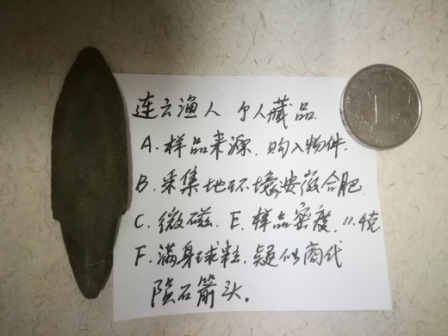 连云渔人 个人藏品
A. 样品来源. 购入物件.
B. 采集地环境安徽合肥
C. 微磁. E. 样品密度. 11.4克
F. 满身球粒. 疑似商代
陨石箭头。